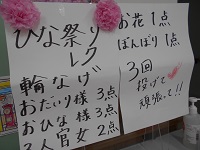 ひな祭り
レク
輪なげ
おだいり様 3点
おひな様 3点
3人官女 2点
お花 1点
ぼんぼり 1点
3回
投げて
頑張って!!